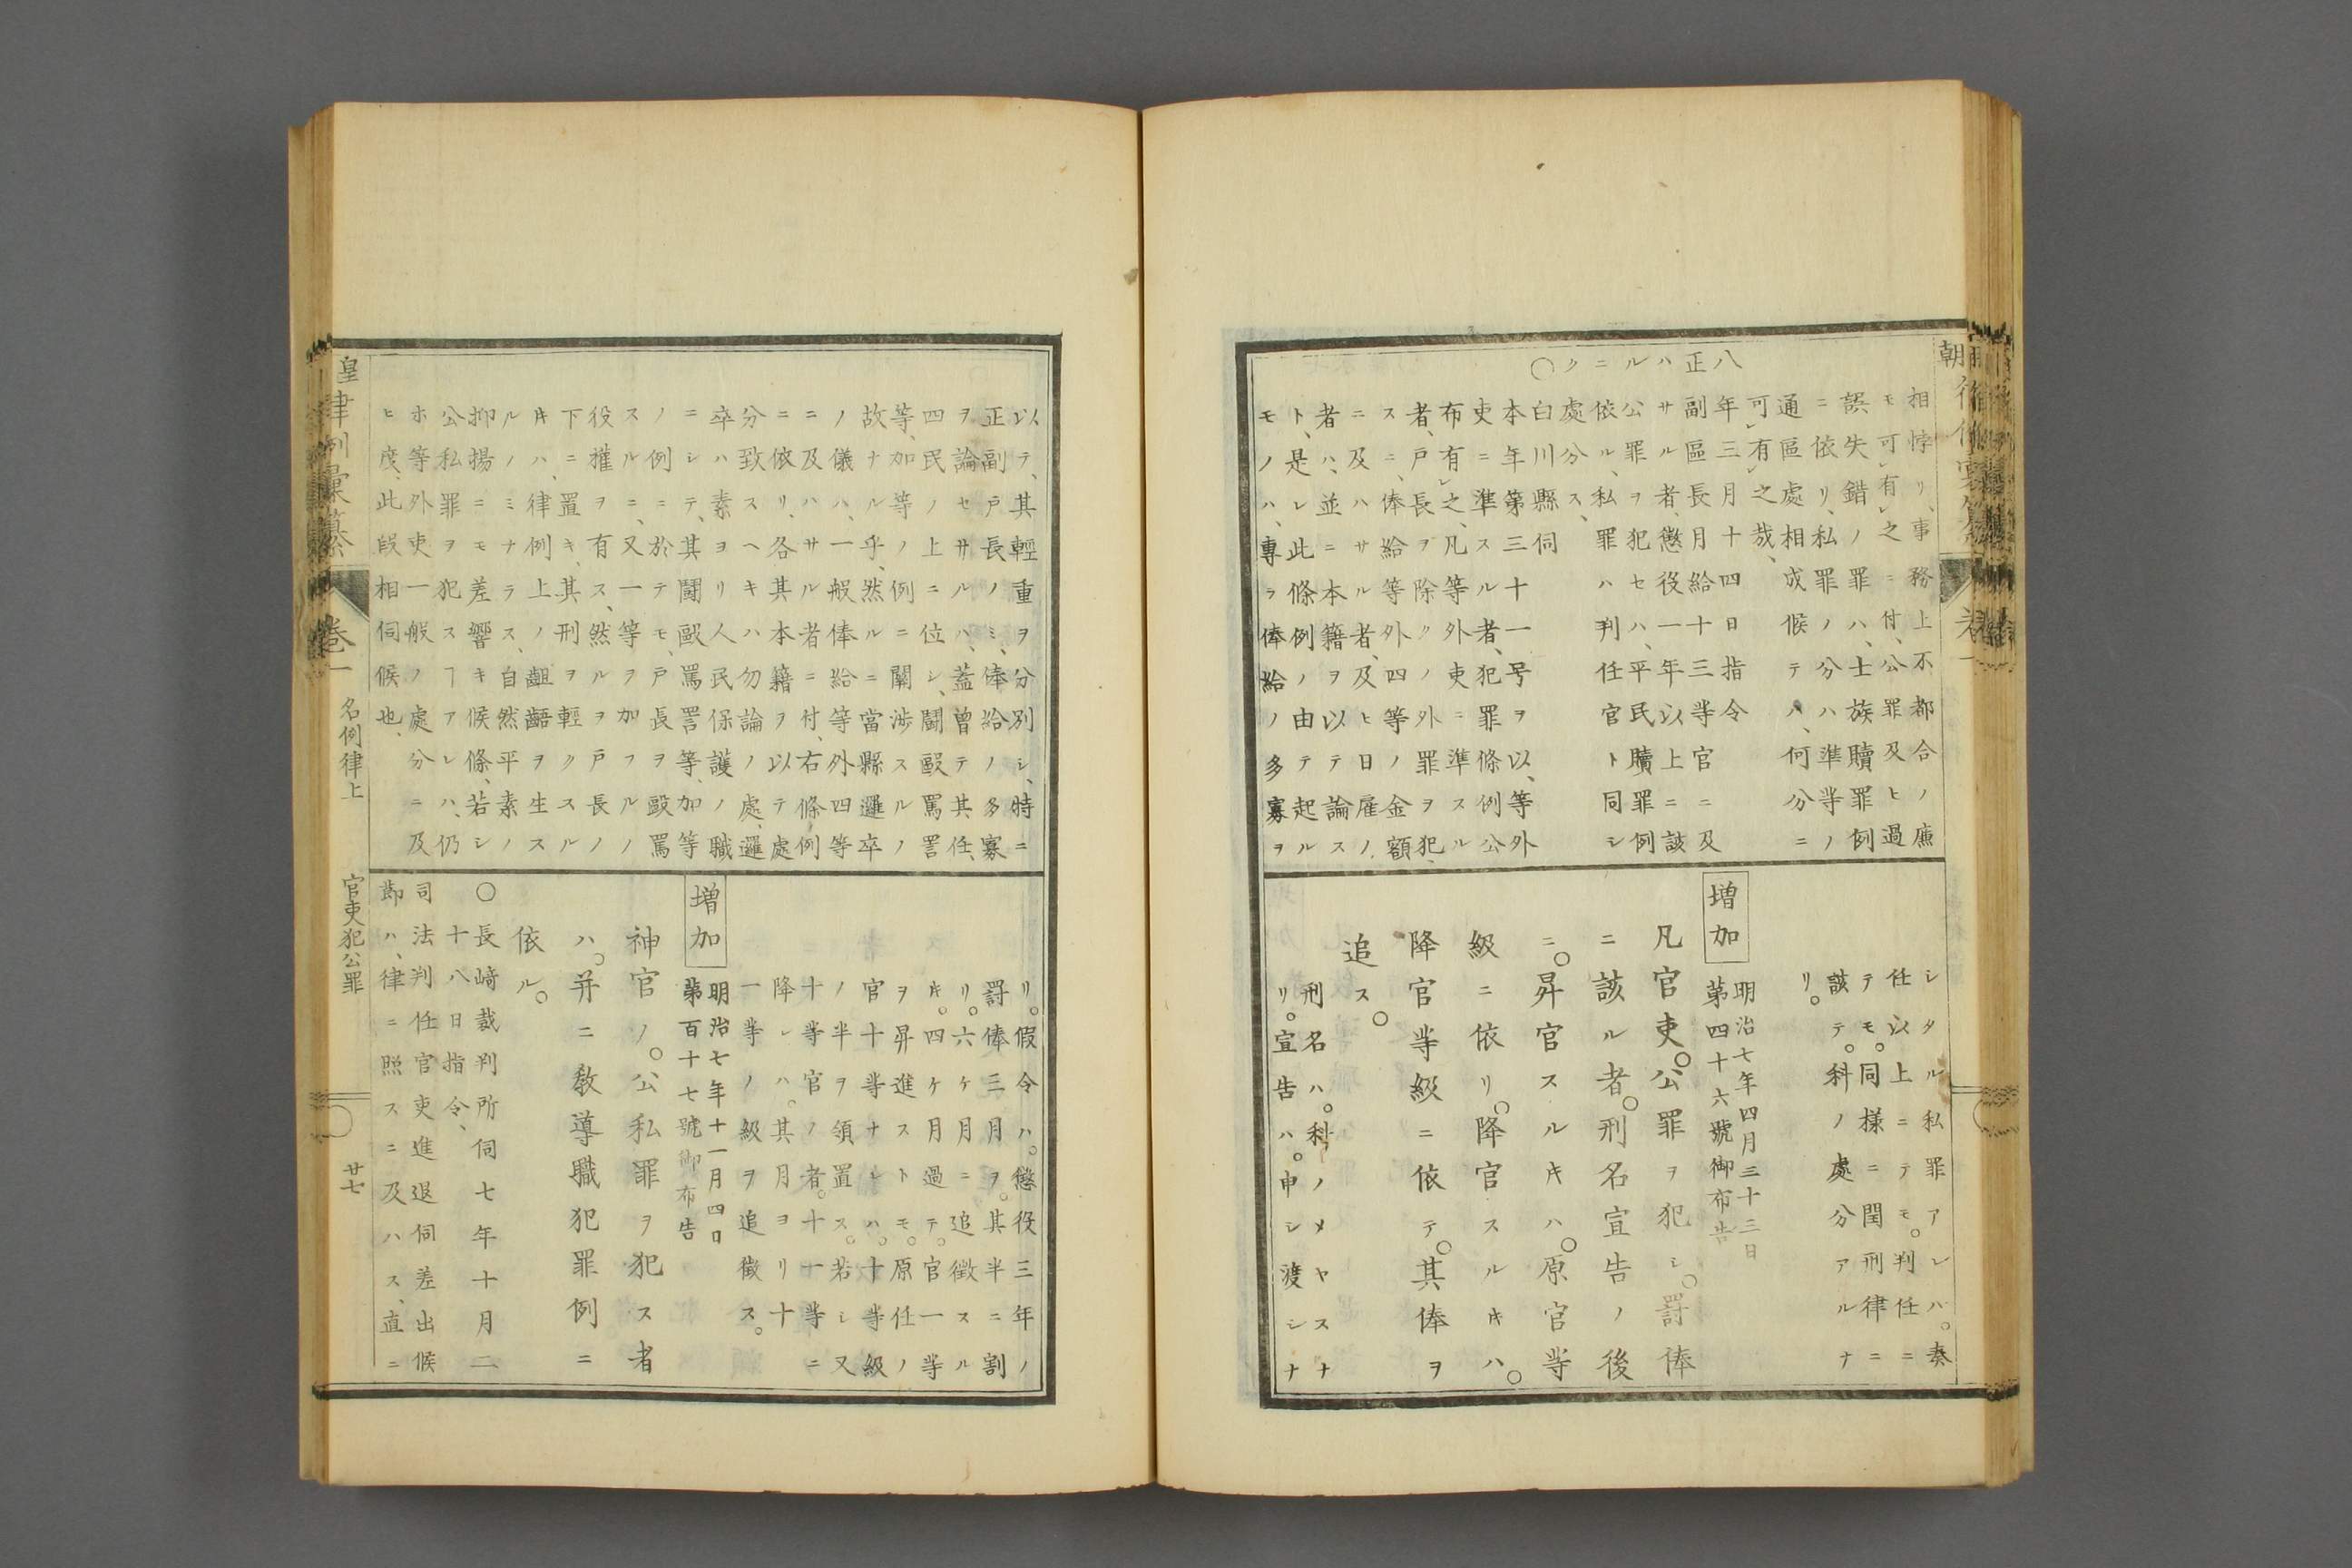 相悖リ、事務上不都合ノ廉
モ可有之ニ付、公罪及ヒ過
誤失錯ノ罪ハ、士族贖罪例
ニ依リ、私罪ノ分ハ準等ノ
通區處相成候テハ、何分ニ
可有之哉、
年三月十四日指令
副區長月給十三等官ニ及
サル者、懲役一年以上ニ該
公罪ヲ犯セハ、平民贖罪例
依ル、私罪ハ判任官ト同シ
處分ス、
白川縣伺
本年第三十一号ヲ以、等外
吏ニ準スル者、犯罪條例公
布有之、凡等外吏ニ準スル
者、戸長ヲ除クノ外罪ヲ犯
ス二、俸給等外四等ノ金額
ニ及ハサル者、及ヒ日雇ノ
者ハ、並ニ本籍ヲ以テ論ス
ト、是レ此條例ノ由テ起ル
モノハ、專ラ俸給ノ多寡ヲ
八正ハルニク〇
シタル私罪アレハ。奏
任以上ニテモ。判任ニ
テモ。同様ニ閏刑律ニ
該テ。科ノ處分アルナ
リ。
増加
明治七年四月三十三日
第四十六號御布告
凡官吏。公罪ヲ犯シ。罰俸
ニ該ル者。刑名宣告ノ後
ニ。昇官スルキハ。原官等
級ニ依リ。降官スルキハ。
降官等級ニ依テ。其俸ヲ
追ス。
刑名ハ。科シノメヤスナ
リ。宣告ハ。申シ渡シナ
以テ、其輕重ヲ分別シ、特ニ
正副戸長ノミ、俸給ノ多寡
ヲ論セサルハ、蓋曾テ其任、
四民ノ上ニ位シ、鬪毆罵詈
等、加等ノ例ニ關渉スルノ
故ナル乎、然ルニ當縣邏卒
ノ儀ハ、一般俸給等外四等
ニ及ハサル者ニ付、右條例
ニ依リ、各其本籍ヲ以テ處
分致スヘキハ勿論ノ處、邏
卒ハ素ヨリ人民保護ノ職
ニシテ、其鬪毆罵詈等、加等
ノ例ニ於テモ、戸長ヲ毆罵
スルニ、又一等ヲ加フルノ
役權ヲ有ス、然ルヲ戸長ノ
下ニ置キ、其刑ヲ輕クスル
キハ、律例上ノ齟齬ヲ生ス
ルノミナラス、自然平素ノ
抑揚ニモ差響キ候條、若シ
公私罪ヲ犯スヿアレハ、仍
ホ等外吏一般ノ處分ニ及
ヒ度、此段相伺候也、
リ。假令ハ。懲役三年ノ
罰俸三月ヲ。其半ニ割
リ。六ケ月ニ追徴スル
キ。四ケ月過テ。官一等
ヲ昇進ストモ。原任ノ
官十等ナレハ。十等級
ノ半ヲ領置ス。若シ又
十等官ノ者。十一等ニ
降レハ。其月ヨリ十
一等ノ級ヲ追徴ス。
増加
明治七年十一月四日
第百十七號御布告
神官ノ。公私罪ヲ犯ス者
ハ。并ニ教導職犯罪例ニ
依ル。
〇長﨑裁判所伺七年十月二
十八日指令、
司法判任官吏進退伺差出候
節ハ、律ニ照スニ及ハス、直ニ
皇律例彙纂
卷一
名例律上
官吏犯公罪
廿七